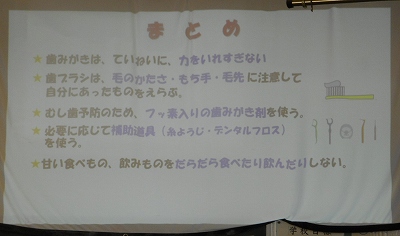 まとめ
★歯みがきは、ていねいに、力をいれすぎない
★歯ブラシは、毛のかたさ・もち手・毛先に注意して
自分にあったものをえらぶ。
★むし歯予防のため、フッ素入りの歯みがき剤を使う。
★必要に応じて補助道具（糸ようじ・デンタルフロス）
を使う。
★甘い食べもの、飲みものをだらだら食べたり飲んだりしない。
学校